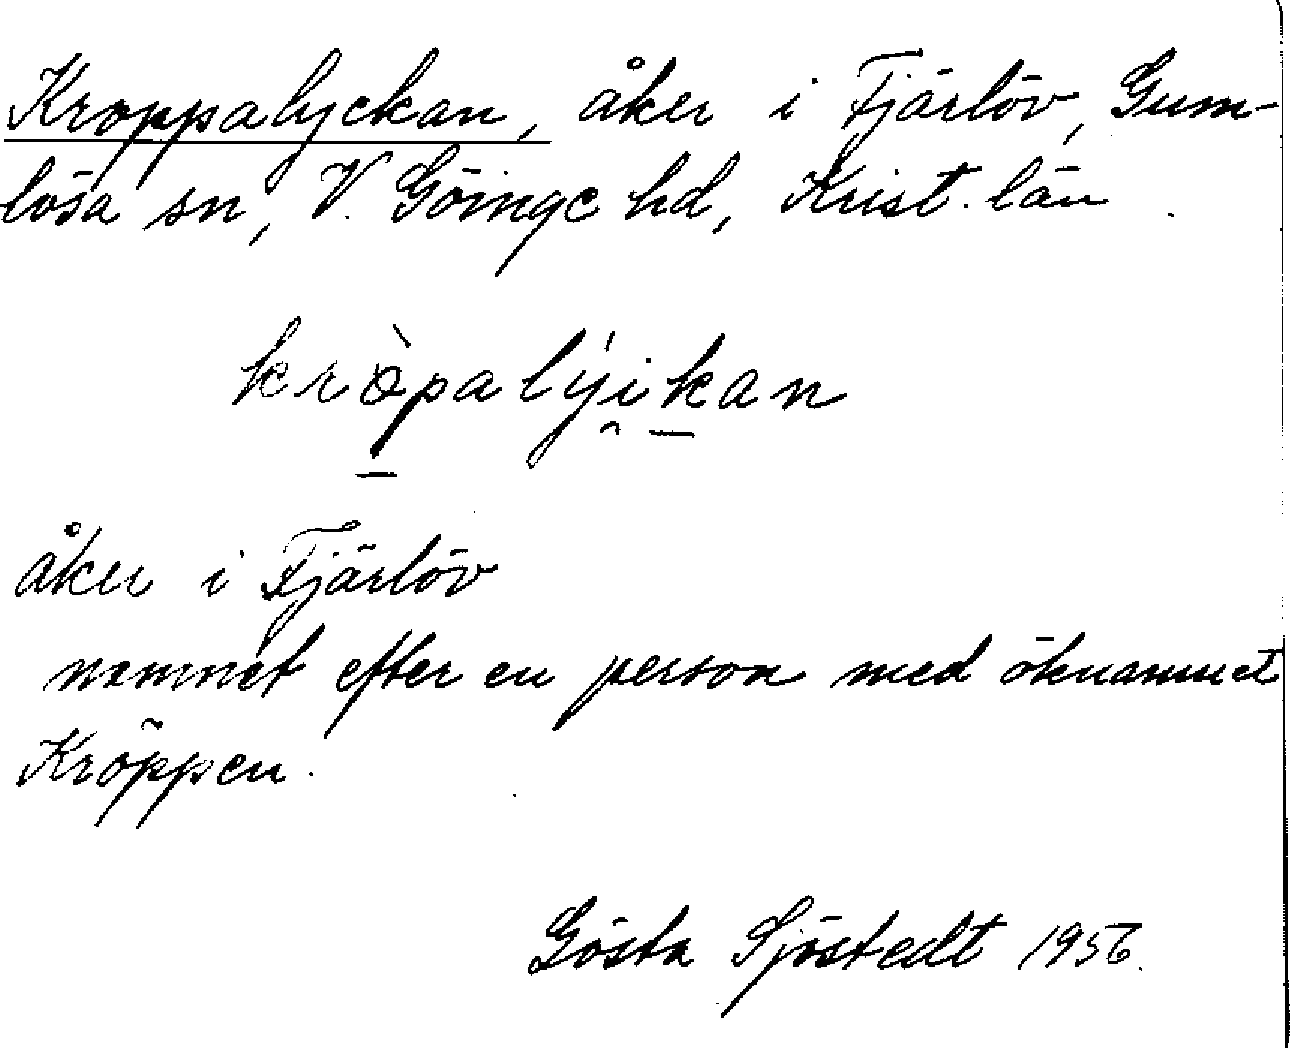 Kroppalyckan, åker i Fjärlöv, Gum-
lösa sn, V. Göinge hd, Krist. län.
kròpalýi̯kan
åker i Fjärlöv
nemnet efter en person med öknamnet
Kröppen.
Gösta Sjöstedt 1956.